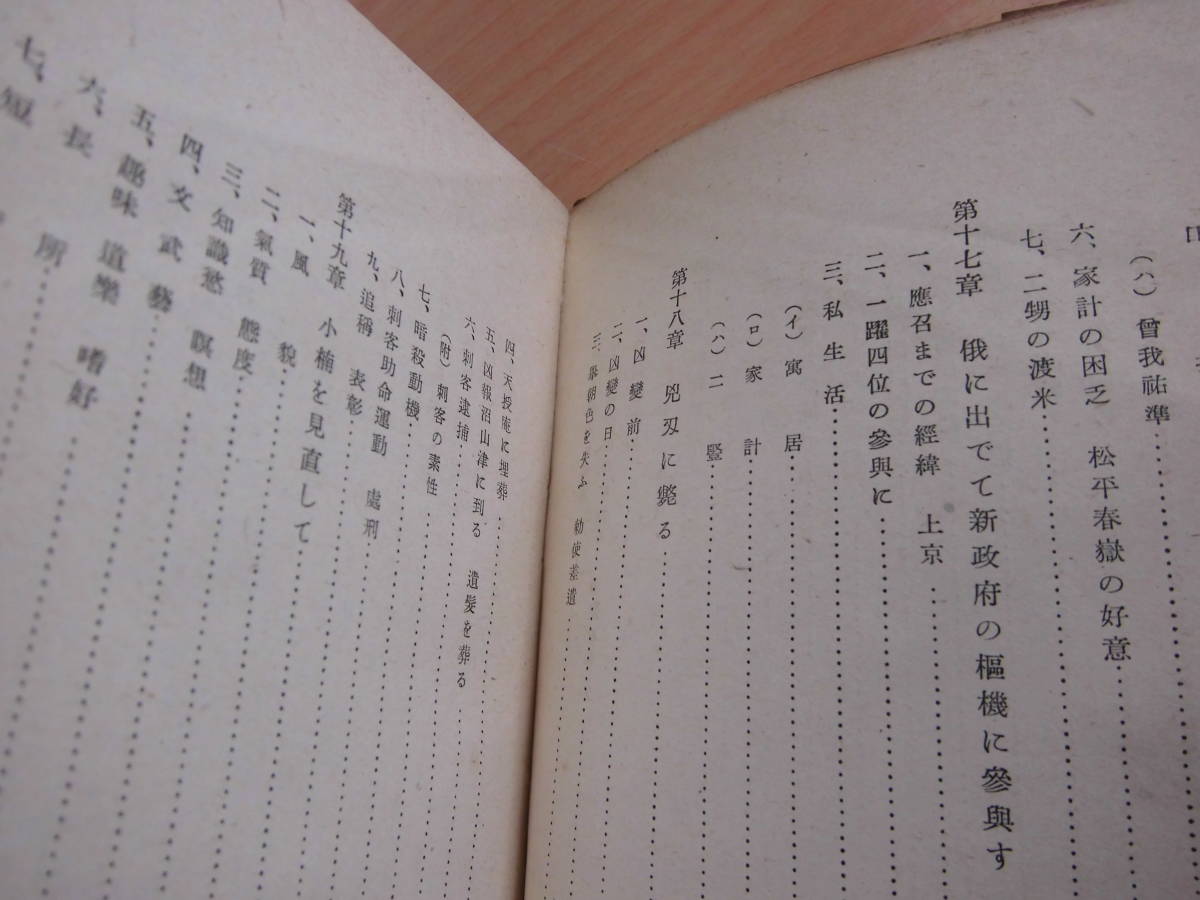 (ハ) 曾我祐準
六、家計の困乏 松平春嶽の好意
七、二甥の渡米
第十七章 俄に出でて新政府の樞機に參與す
一、應召までの經緯 上京
二、一躍四位の參與に
三、私生活
(イ) 寓居
(ロ) 家計
(ハ) 二豎
第十八章 兇刃に斃る
一、凶變前
二、凶變の日
三、擧朝色を失ふ 勅使差遣
四、天授庵に埋葬
五、凶報沼山津に到る 遺髪を葬る
六、刺客逮捕
(附) 刺客の素性
七、暗殺動機
八、刺客助命運動 處刑
九、追稱 表彰
第十九章 小楠を見直して
一、風貌
二、氣質 態度
三、知識慾 瞑想
四、文武藝
五、趣味 道樂 嗜好
六、長所
七、短